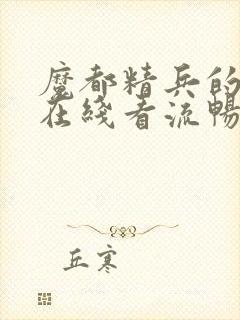 魔都精兵的
在线看流畅
丘寒